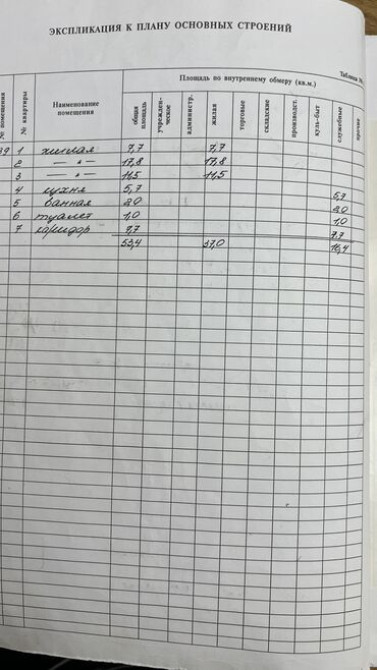 ЭКСПЛИКАЦИЯ К ПЛАНУ ОСНОВНЫХ СТРОЕНИЙ
Площадь по внутреннему обмеру (кв.м.)
Таблица
№ помещения № квартиры Наименование помещения общая площадь учрежден-ческое администр. жилая торговые складские производст. куль-быт служебные прочие
1 жилая 7,7 7,7
2 — " — 17,8 17,8
3 — " — 11,5 11,5
4 кухня 5,7 5,7
5 ванная 2,0 2,0
6 туалет 1,0 1,0
7 коридор 7,7 7,7
53,4 37,0 16,4